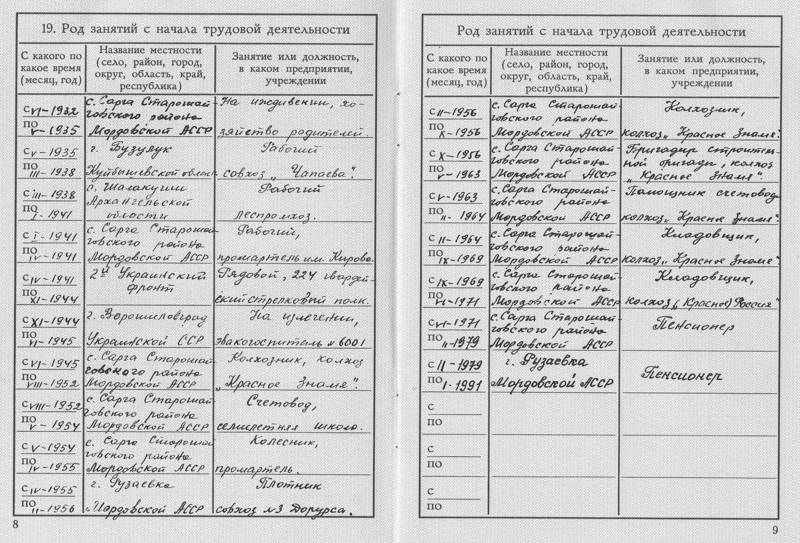 19. Род занятий с начала трудовой деятельности
С какого по какое время (месяц, год)
Название местности (село, район, город, округ, область, край, республика)
Занятие или должность, в каком предприятии, учреждении
с VI-1932 по V-1935
с. Сарга Старошайговского района Мордовской АССР
На иждивении, хозяйство родителей.
с V-1935 по III-1938
г. Бузулук Куйбышевской области
Рабочий совхоз „Чапаева".
с III-1938 по I-1941
п. Шалакуши Архангельской области
Рабочий леспромхоз.
с I-1941 по IV-1941
с. Сарга Старошайговского района Мордовской АССР
Рабочий, промартель им. Кирова.
с IV-1941 по XI-1944
2й Украинский фронт
Рядовой, 224 гвардейский стрелковый полк.
с XI-1944 по VI-1945
г. Ворошиловград Украинской ССР
На излечении, эвакогоспиталь № 6001
с VI-1945 по VIII-1952
с. Сарга Старошайговского района Мордовской АССР
Колхозник, колхоз „Красное Знамя".
с VIII-1952 по V-1954
с. Сарга Старошайговского района Мордовской АССР
Счетовод, семилетняя школа.
с V-1954 по IV-1955
с. Сарга Старошайговского района Мордовской АССР
Колесник, промартель.
с IV-1955 по II-1956
г. Рузаевка Мордовской АССР
Плотник совхоз №3 Дорурса.
8
Род занятий с начала трудовой деятельности
С какого по какое время (месяц, год)
Название местности (село, район, город, округ, область, край, республика)
Занятие или должность, в каком предприятии, учреждении
с II-1956 по X-1956
с. Сарга Старошайговского района Мордовской АССР
Колхозник, колхоз „Красное Знамя".
с X-1956 по V-1963
с. Сарга Старошайговского района Мордовской АССР
Бригадир строительной бригады, колхоз „Красное Знамя".
с V-1963 по II-1964
с. Сарга Старошайговского района Мордовской АССР
Помощник счетовод колхоз „Красное Знамя".
с II-1964 по IX-1969
с. Сарга Старошайговского района Мордовской АССР
Кладовщик, колхоз „Красное Знамя".
с IX-1969 по VI-1971
с. Сарга Старошайговского района Мордовской АССР
Кладовщик, колхоз „Красное Россия"
с VI-1971 по II-1979
с. Сарга Старошайговского района Мордовской АССР
Пенсионер
с II-1979 по I-1991
г. Рузаевка Мордовской АССР
Пенсионер
с
по
с
по
с
по
9